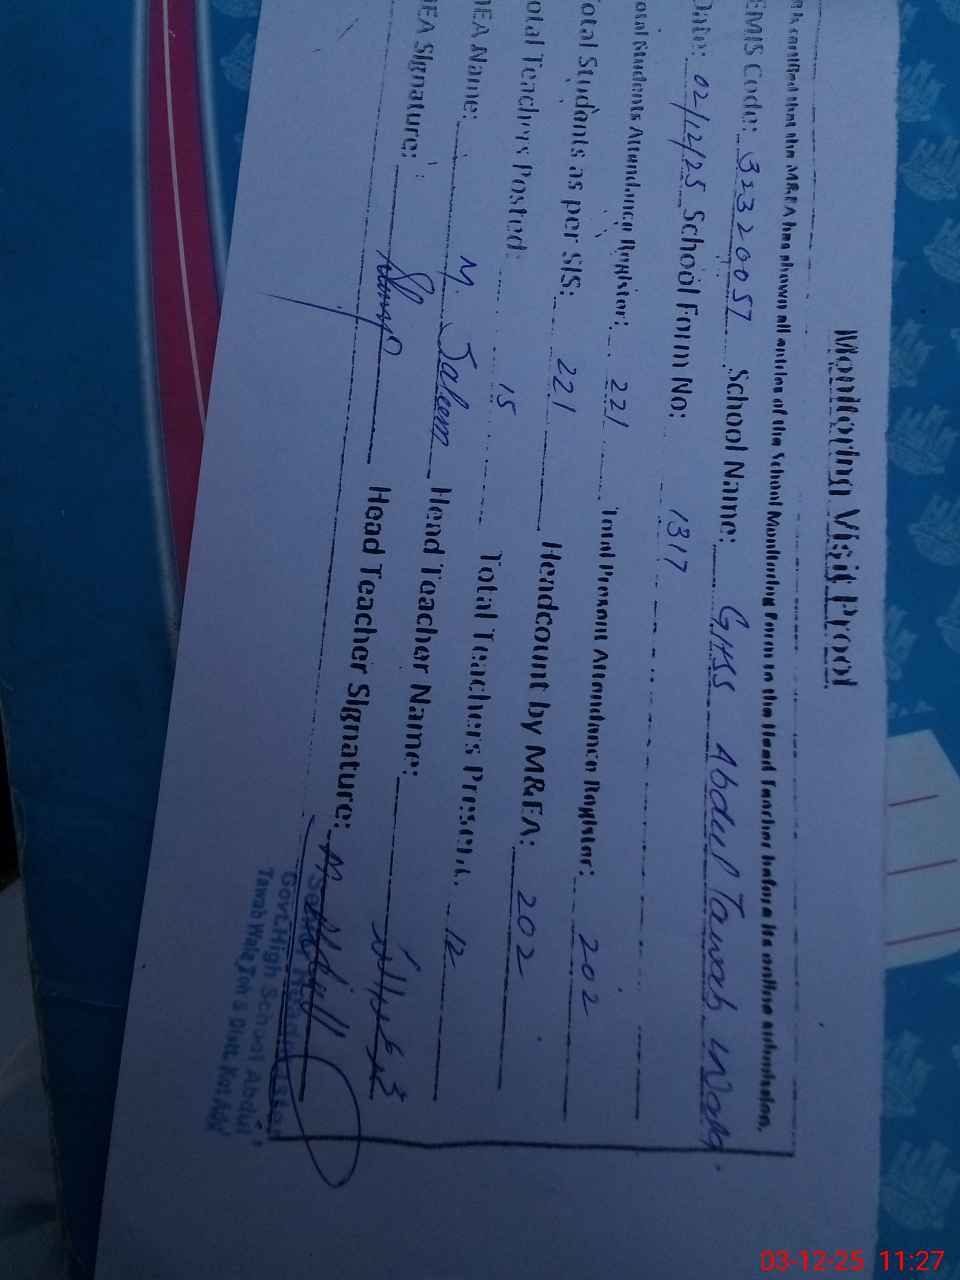 Monitoring Visit Proof
is certified that the M&EA has shown all entries of the School Monitoring Form to the Head Teacher before its online submission.
EMIS Code: 32320057 School Name: GHSS Abdul Tawab Wala.
Date: 02/12/25 School Form No: 1317
otal Students Attendance Register: 221 Total Present Attendance Register: 202
otal Students as per SIS: 221 Headcount by M&EA: 202
otal Teachers Posted: 15 Total Teachers Present: 12
EA Name: M. Saleem Head Teacher Name:
EA Signature: Head Teacher Signature:
Govt. High School Abdul
Tawab Wala
03-12-25 11:27